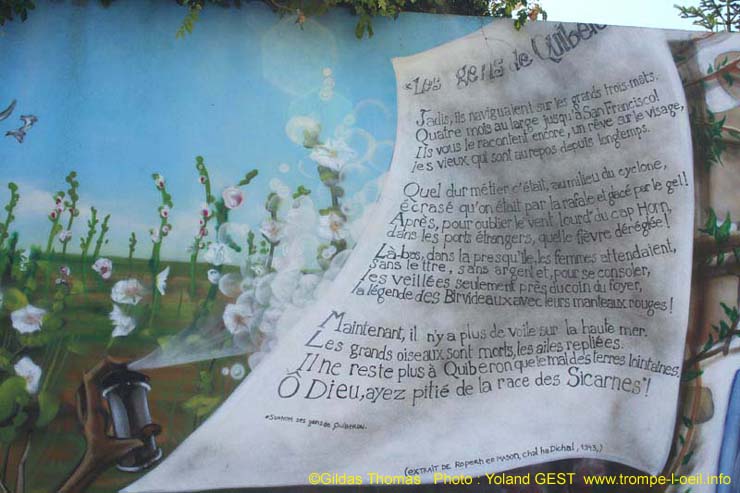 "Les gens de Quiberon
Jadis, ils naviguaient sur les grands trois-mâts.
Quatre mois au large jusqu'à San Francisco!
Ils vous le racontent encore, un rêve sur le visage,
les vieux qui sont au repos depuis longtemps.
Quel dur métier c'était, au milieu du cyclone,
écrasé qu'on était par la rafale et glacé par le gel!
Après, pour oublier le vent lourd du cap Horn,
dans les ports étrangers, quelle fièvre déréglée!
Là-bas, dans la presqu'île, les femmes attendaient,
sans lettre, sans argent et, pour se consoler,
les veillées seulement près du coin du foyer,
la légende des Birvideaux avec leurs manteaux rouges!
Maintenant, il n'y a plus de voile sur la haute mer.
Les grands oiseaux sont morts, les ailes repliées.
Il ne reste plus à Quiberon que le mal des terres lointaines.
Ô Dieu, ayez pitié de la race des Sicarnes*!
*Surnom des gens de Quiberon.
(EXTRAIT DE Roperh er Mason, Chal ha Dichal, 1943,)
©Gildas Thomas Photo : Yoland GEST www.trompe-l-oeil.info